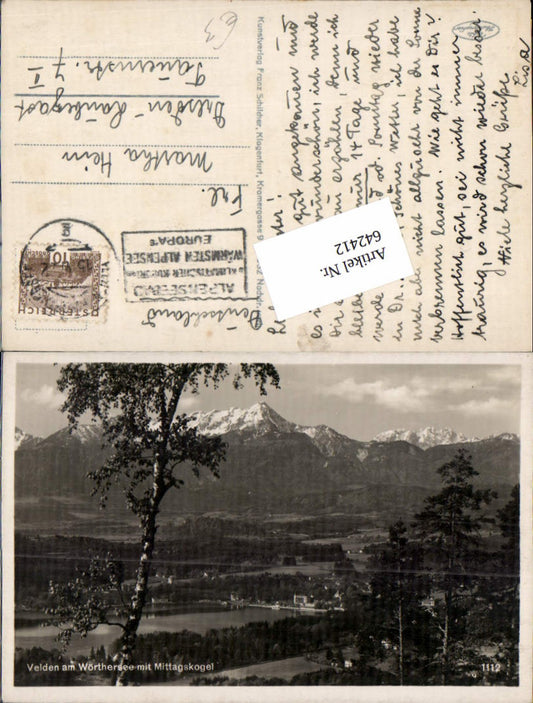 L
gut angekommen und
es i wunderschön, ich werde
Dir e erzählen, denn ich
bleibe nur 14 Tage, und
werde od. Sonntag wieder
in Dr. Schönes Wetter, ich habe
mich aber nicht allzusehr von der Sonne
verbrennen lassen. Wie geht es Dir?
Hoffentlich gut, sei nicht immer
traurig, es wird schon wieder besser.
Viele herzliche Grüße
Lisa
Artikel Nr.
642412
Kunstverlag Franz Schilcher, Klagenfurt, Kramergasse 9
ALPENSEEBAD
KLIMATISCHER KURORT
WÄRMSTEN ALPENSEE
EUROPA'S
10
ÖSTERREICH
Deutschland
Frl.
Martha Hein
Dresden-Laubegast
Tauernstr. 7 I
Velden am Wörthersee mit Mittagskogel
1112